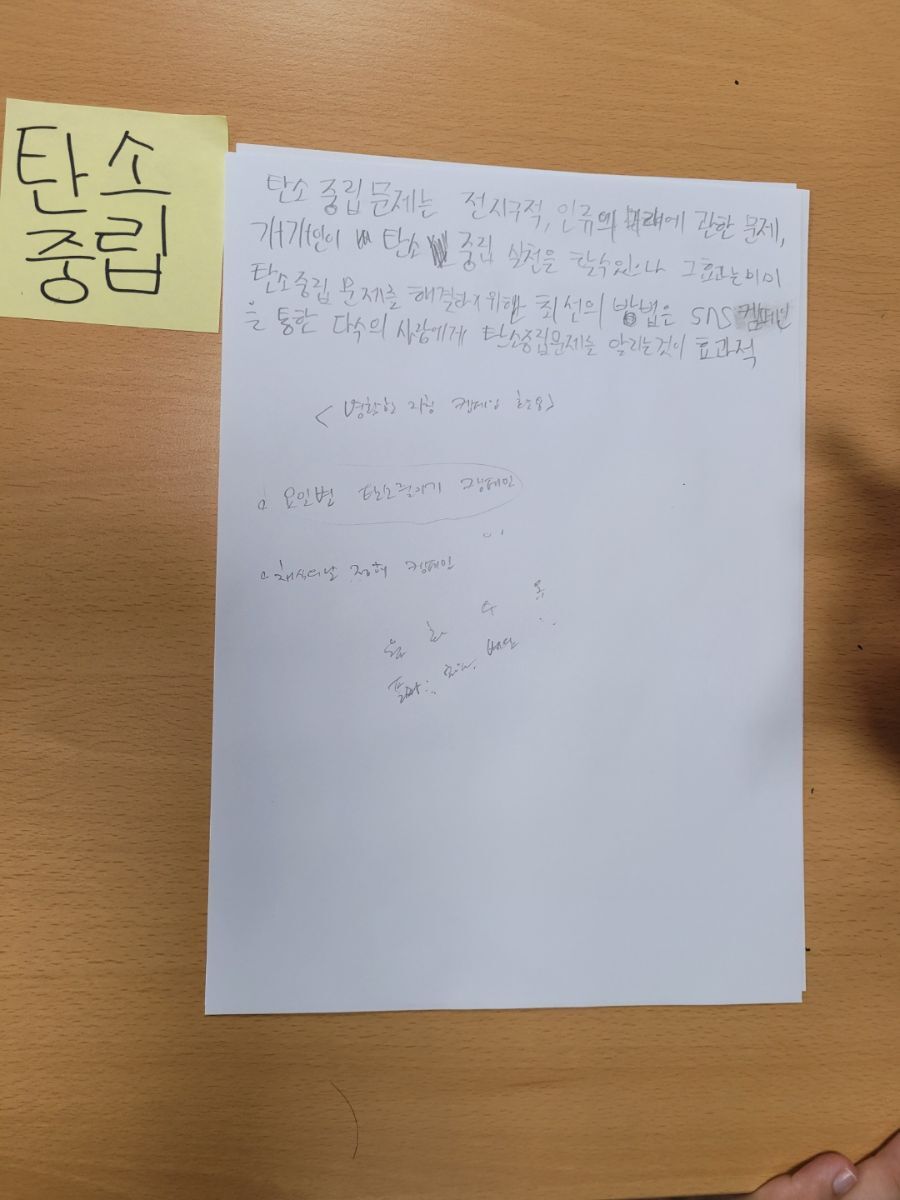 탄소
중립
탄소 중립 문제는 전지구적, 인류의 미래에 관한 문제,
개개인이 탄소 중립 실천을 할수있으나 그효과는미미
탄소중립 문제를 해결하기위해 최선의 방법은 SNS 캠페인
을 통한 다수의 사람에게 탄소중립문제를 알리는것이 효과적
캠페인 활용>
요일별 탄소줄이기 캠페인
채식의날 정해 캠페인
월 화 수 목